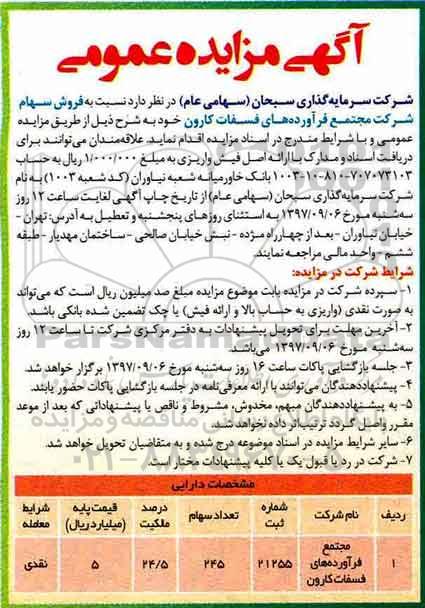 آگهی مزایده عمومی
شرکت سرمایه‌گذاری سبحان (سهامی عام) در نظر دارد نسبت به فروش سهام
شرکت مجتمع فرآورده‌های فسفات کارون خود به شرح ذیل از طریق مزایده
عمومی و با شرایط مندرج در اسناد مزایده اقدام نماید. علاقه‌مندان می‌توانند برای
دریافت اسناد و مدارک با ارائه اصل فیش واریزی به مبلغ ۱/۰۰۰/۰۰۰ ریال به حساب
۱۰۰۳-۱۰-۸۱۰-۷۰۷۰۷۳۱۰۳ بانک خاورمیانه شعبه نیاوران (کد شعبه ۱۰۰۳) به نام
شرکت سرمایه‌گذاری سبحان (سهامی عام) از تاریخ چاپ آگهی لغایت ساعت ۱۲ روز
سه‌شنبه مورخ ۱۳۹۷/۰۹/۰۶ به استثنای روزهای پنجشنبه و تعطیل به آدرس: تهران -
خیابان نیاوران - بعد از چهارراه مژده - نبش خیابان صالحی - ساختمان مهدیار - طبقه
ششم - واحد مالی مراجعه نمایند.
شرایط شرکت در مزایده:
۱- سپرده شرکت در مزایده بابت موضوع مزایده مبلغ صد میلیون ریال است که می‌تواند
به صورت نقدی (واریزی به حساب بالا و ارائه فیش) یا چک تضمین شده بانکی باشد.
۲- آخرین مهلت برای تحویل پیشنهادات به دفتر مرکزی شرکت تا ساعت ۱۲ روز
سه‌شنبه مورخ ۱۳۹۷/۰۹/۰۶ می‌باشد.
۳- جلسه بازگشایی پاکات ساعت ۱۶ روز سه‌شنبه مورخ ۱۳۹۷/۰۹/۰۶ برگزار خواهد شد.
۴- پیشنهاددهندگان می‌توانند با ارائه معرفی‌نامه در جلسه بازگشایی پاکات حضور یابند.
۵- به پیشنهاددهندگان مبهم، مخدوش، مشروط و ناقص یا پیشنهاداتی که بعد از موعد
مقرر واصل گردد ترتیب اثر داده نخواهد شد.
۶- سایر شرایط مزایده در اسناد موضوعه درج شده و به متقاضیان تحویل خواهد شد.
۷- شرکت در رد یا قبول یک یا کلیه پیشنهادات مختار است.
مشخصات دارایی
ردیف نام شرکت شماره ثبت تعداد سهام درصد مالکیت قیمت پایه (میلیارد ریال) شرایط معامله
۱ مجتمع فرآورده‌های فسفات کارون ۲۱۲۵۵ ۲۴۵ ۲۴/۵ ۵ نقدی